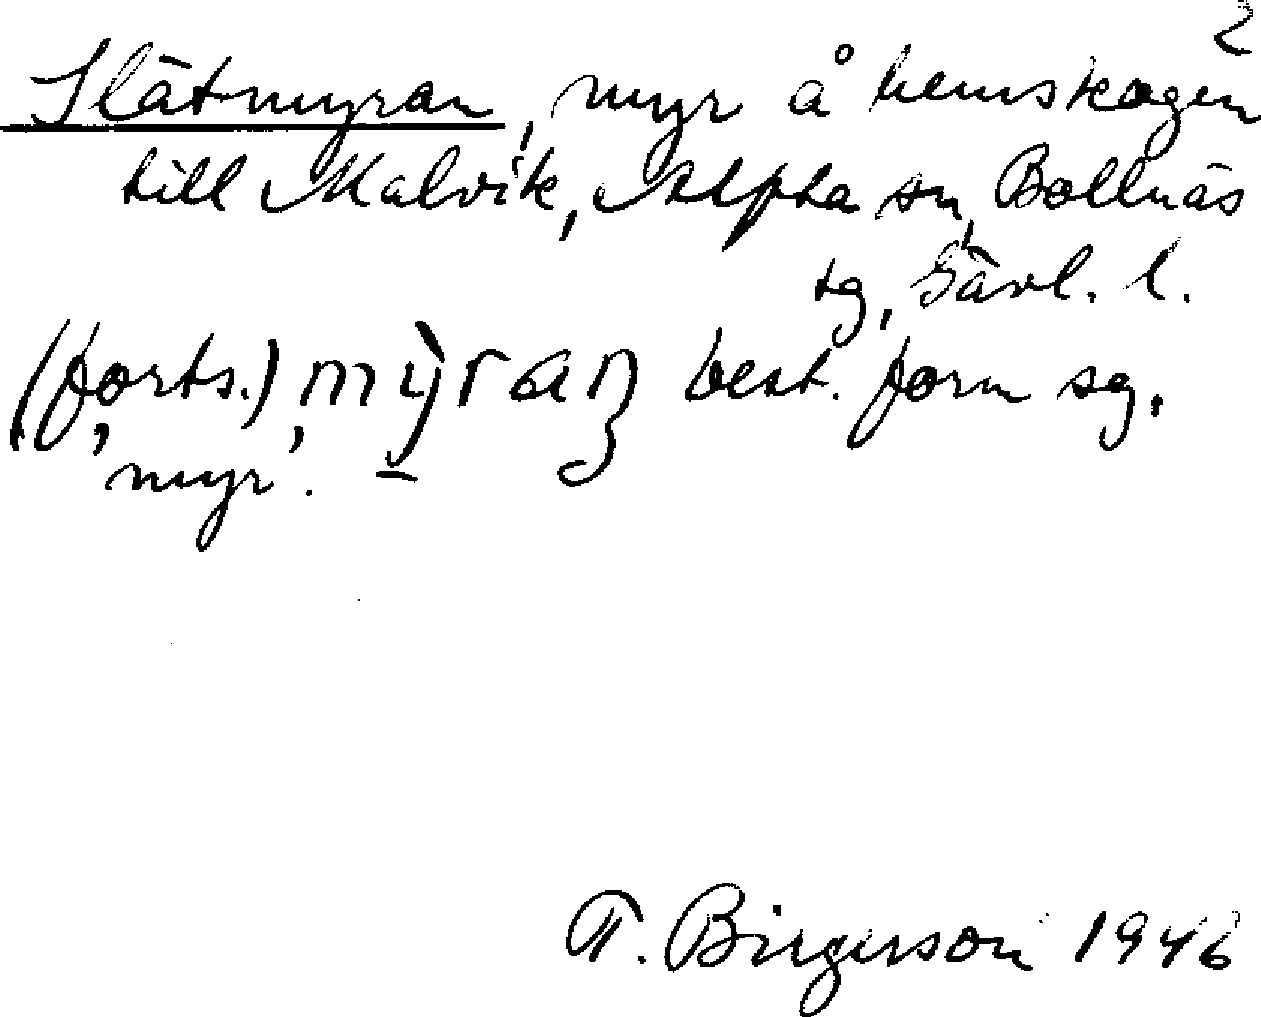 2
Slätmyran, myr å hemskogen
till Malvik, Alfta sn, Bollnäs
tg, Gävl. l.
(forts.) mỳran best. form sg.
'myr'.
T. Birgerson 1946